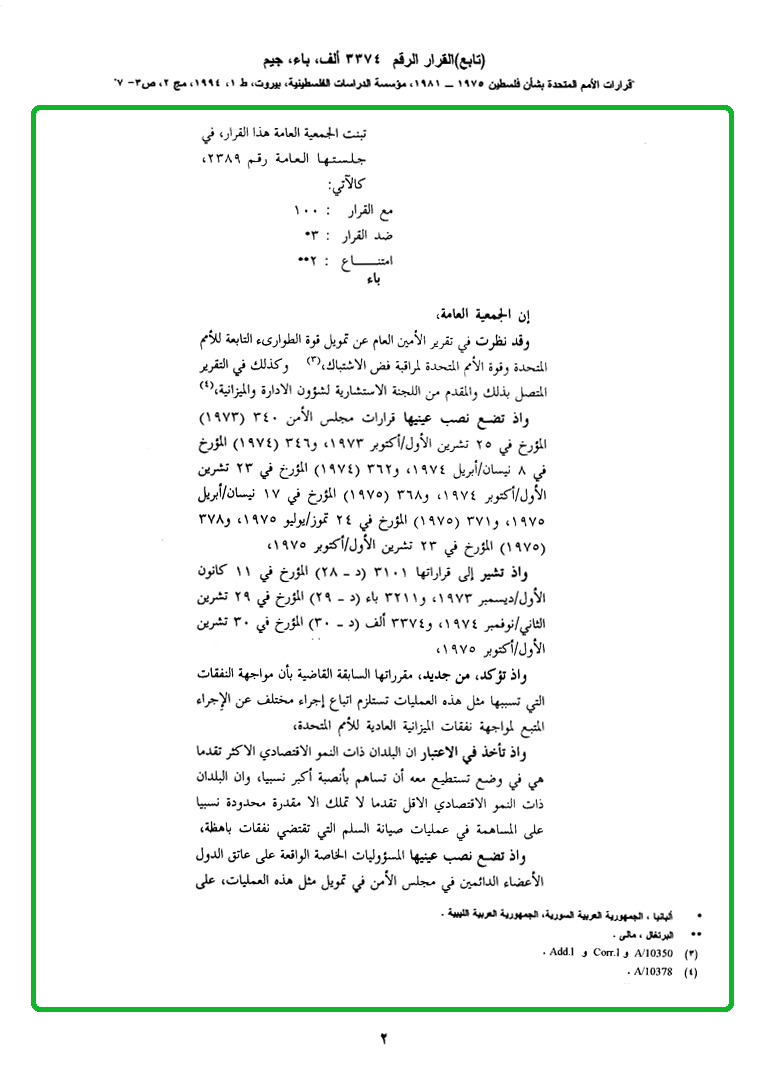 (تابع)القرار الرقم ٣٣٧٤ ألف، باء، جيم
"قرارات الأمم المتحدة بشأن فلسطين ١٩٧٥ ــ ١٩٨١، مؤسسة الدراسات الفلسطينية، بيروت، ط ١، ١٩٩٤، مج ٢، ص٣- ٧"
تبنت الجمعية العامة هذا القرار، في
جلستها العامة رقم ٢٣٨٩،
كالآتي:
مع القرار : ١٠٠
ضد القرار : ٣*
امتنـــاع : ٢**
باء
إن الجمعية العامة،
وقد نظرت في تقرير الأمين العام عن تمويل قوة الطوارىء التابعة للأمم
المتحدة وقوة الأمم المتحدة لمراقبة فض الاشتباك،(٣) وكذلك في التقرير
المتصل بذلك والمقدم من اللجنة الاستشارية لشؤون الادارة والميزانية،(٤)
واذ تضع نصب عينيها قرارات مجلس الأمن ٣٤٠ (١٩٧٣)
المؤرخ في ٢٥ تشرين الأول/أكتوبر ١٩٧٣، و٣٤٦ (١٩٧٤) المؤرخ
في ٨ نيسان/أبريل ١٩٧٤، و٣٦٢ (١٩٧٤) المؤرخ في ٢٣ تشرين
الأول/أكتوبر ١٩٧٤، و٣٦٨ (١٩٧٥) المؤرخ في ١٧ نيسان/أبريل
١٩٧٥، و٣٧١ (١٩٧٥) المؤرخ في ٢٤ تموز/يوليو ١٩٧٥، و٣٧٨
(١٩٧٥) المؤرخ في ٢٣ تشرين الأول/أكتوبر ١٩٧٥،
واذ تشير إلى قراراتها ٣١٠١ (د ـ ٢٨) المؤرخ في ١١ كانون
الأول/ديسمبر ١٩٧٣، و٣٢١١ باء (د ـ ٢٩) المؤرخ في ٢٩ تشرين
الثاني/نوفمبر ١٩٧٤، و٣٣٧٤ ألف (د ـ ٣٠) المؤرخ في ٣٠ تشرين
الأول/أكتوبر ١٩٧٥،
واذ تؤكد، من جديد، مقرراتها السابقة القاضية بأن مواجهة النفقات
التي تسببها مثل هذه العمليات تستلزم اتباع إجراء مختلف عن الإجراء
المتبع لمواجهة نفقات الميزانية العادية للأمم المتحدة،
واذ تأخذ في الاعتبار ان البلدان ذات النمو الاقتصادي الاكثر تقدما
هي في وضع تستطيع معه أن تساهم بأنصبة أكبر نسبيا، وان البلدان
ذات النمو الاقتصادي الاقل تقدما لا تملك الا مقدرة محدودة نسبيا
على المساهمة في عمليات صيانة السلم التي تقتضي نفقات باهظة،
واذ تضع نصب عينيها المسؤوليات الخاصة الواقعة على عاتق الدول
الأعضاء الدائمين في مجلس الأمن في تمويل مثل هذه العمليات، على
* ألبانيا ، الجمهورية العربية السورية، الجمهورية العربية الليبية .
** البرتغال ، مالى .
(٣) A/10350 و Corr.l و Add.l .
(٤) A/10378 .
٢